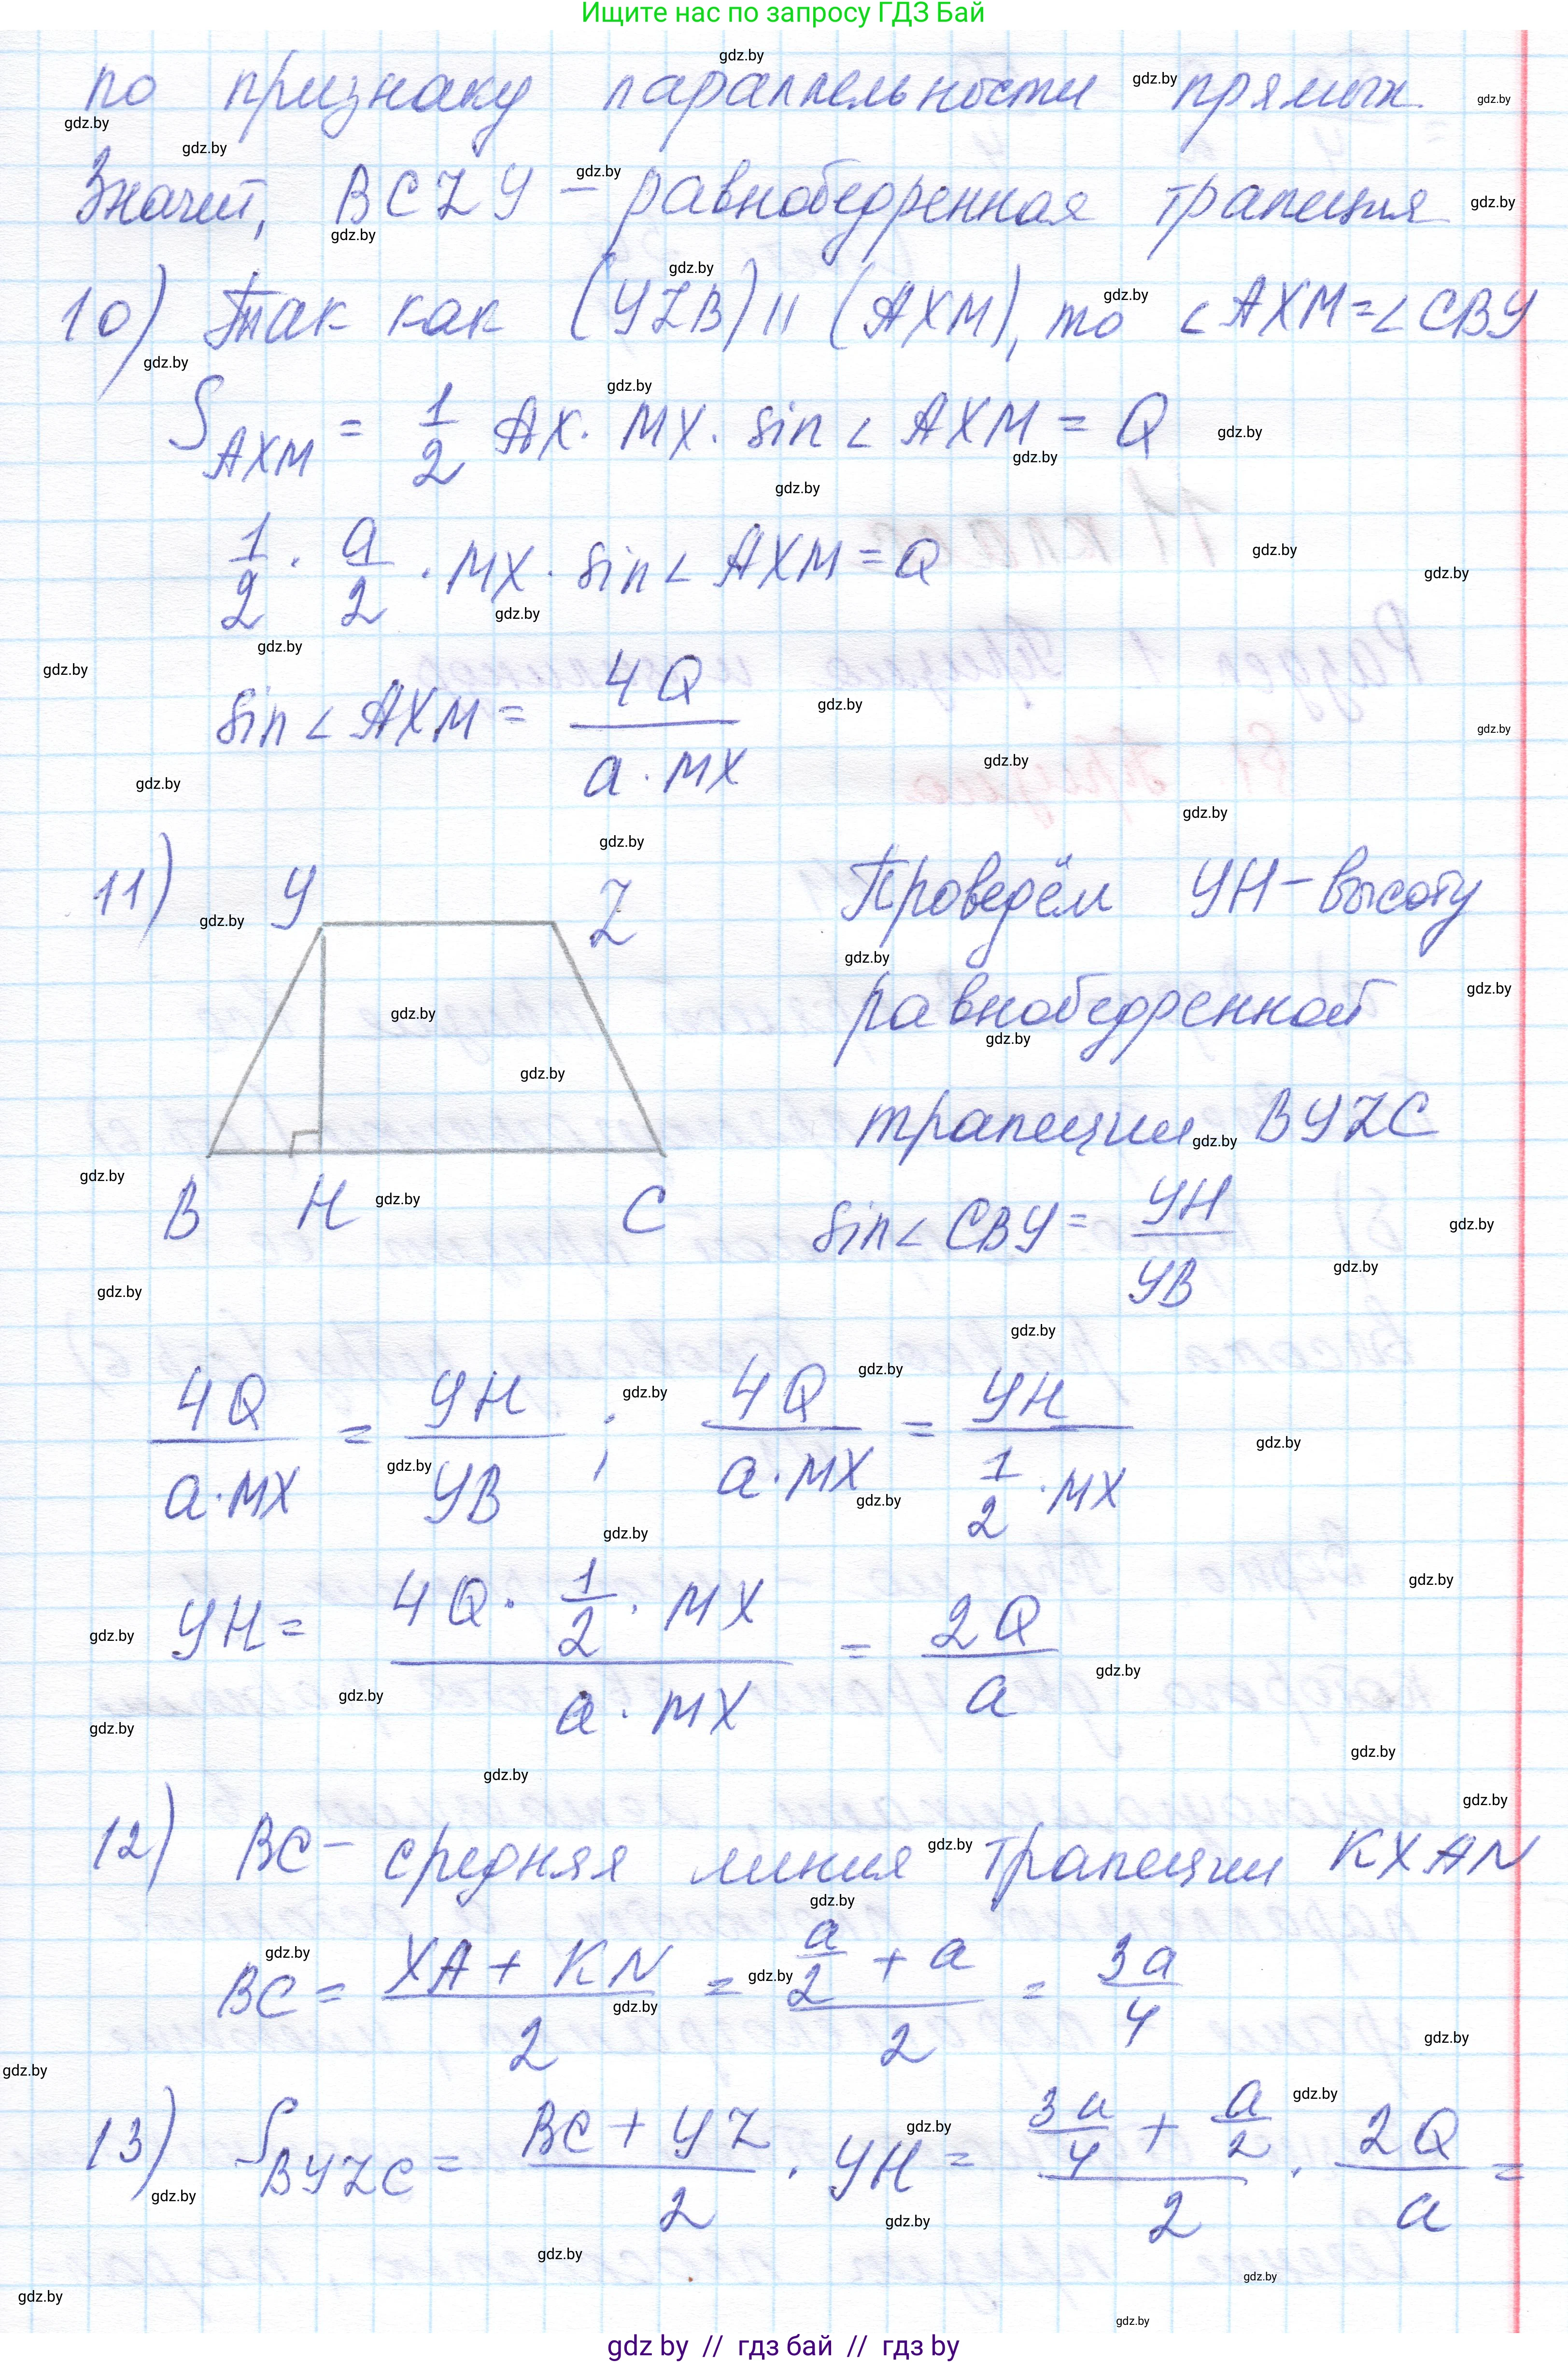 Ищите нас по запросу ГДЗ Бай
по признаку параллельности прямых
Значит, BCZY – равнобедренная трапеция
10) Так как (YZB) || (AXM), то ∠AXM = ∠CBY
S_AXM = 1/2 AX · MX · sin∠AXM = Q
1/2 · a/2 · MX · sin∠AXM = Q
sin∠AXM = 4Q / (a · MX)
11) Y Z
Проведём YH – высоту
равнобедренной
трапеции BYZC
B H C
sin∠CBY = YH/YB
4Q/(a·MX) = YH/YB ; 4Q/(a·MX) = YH/(1/2 · MX)
YH = (4Q · 1/2 · MX)/(a · MX) = 2Q/a
12) BC – средняя линия трапеции KXAN
BC = (XA + KN)/2 = (a/2 + a)/2 = 3a/4
13) S_BYZC = (BC + YZ)/2 · YH = (3a/4 + a/2)/2 · 2Q/a =
gdz by // гдз бай // гдз by